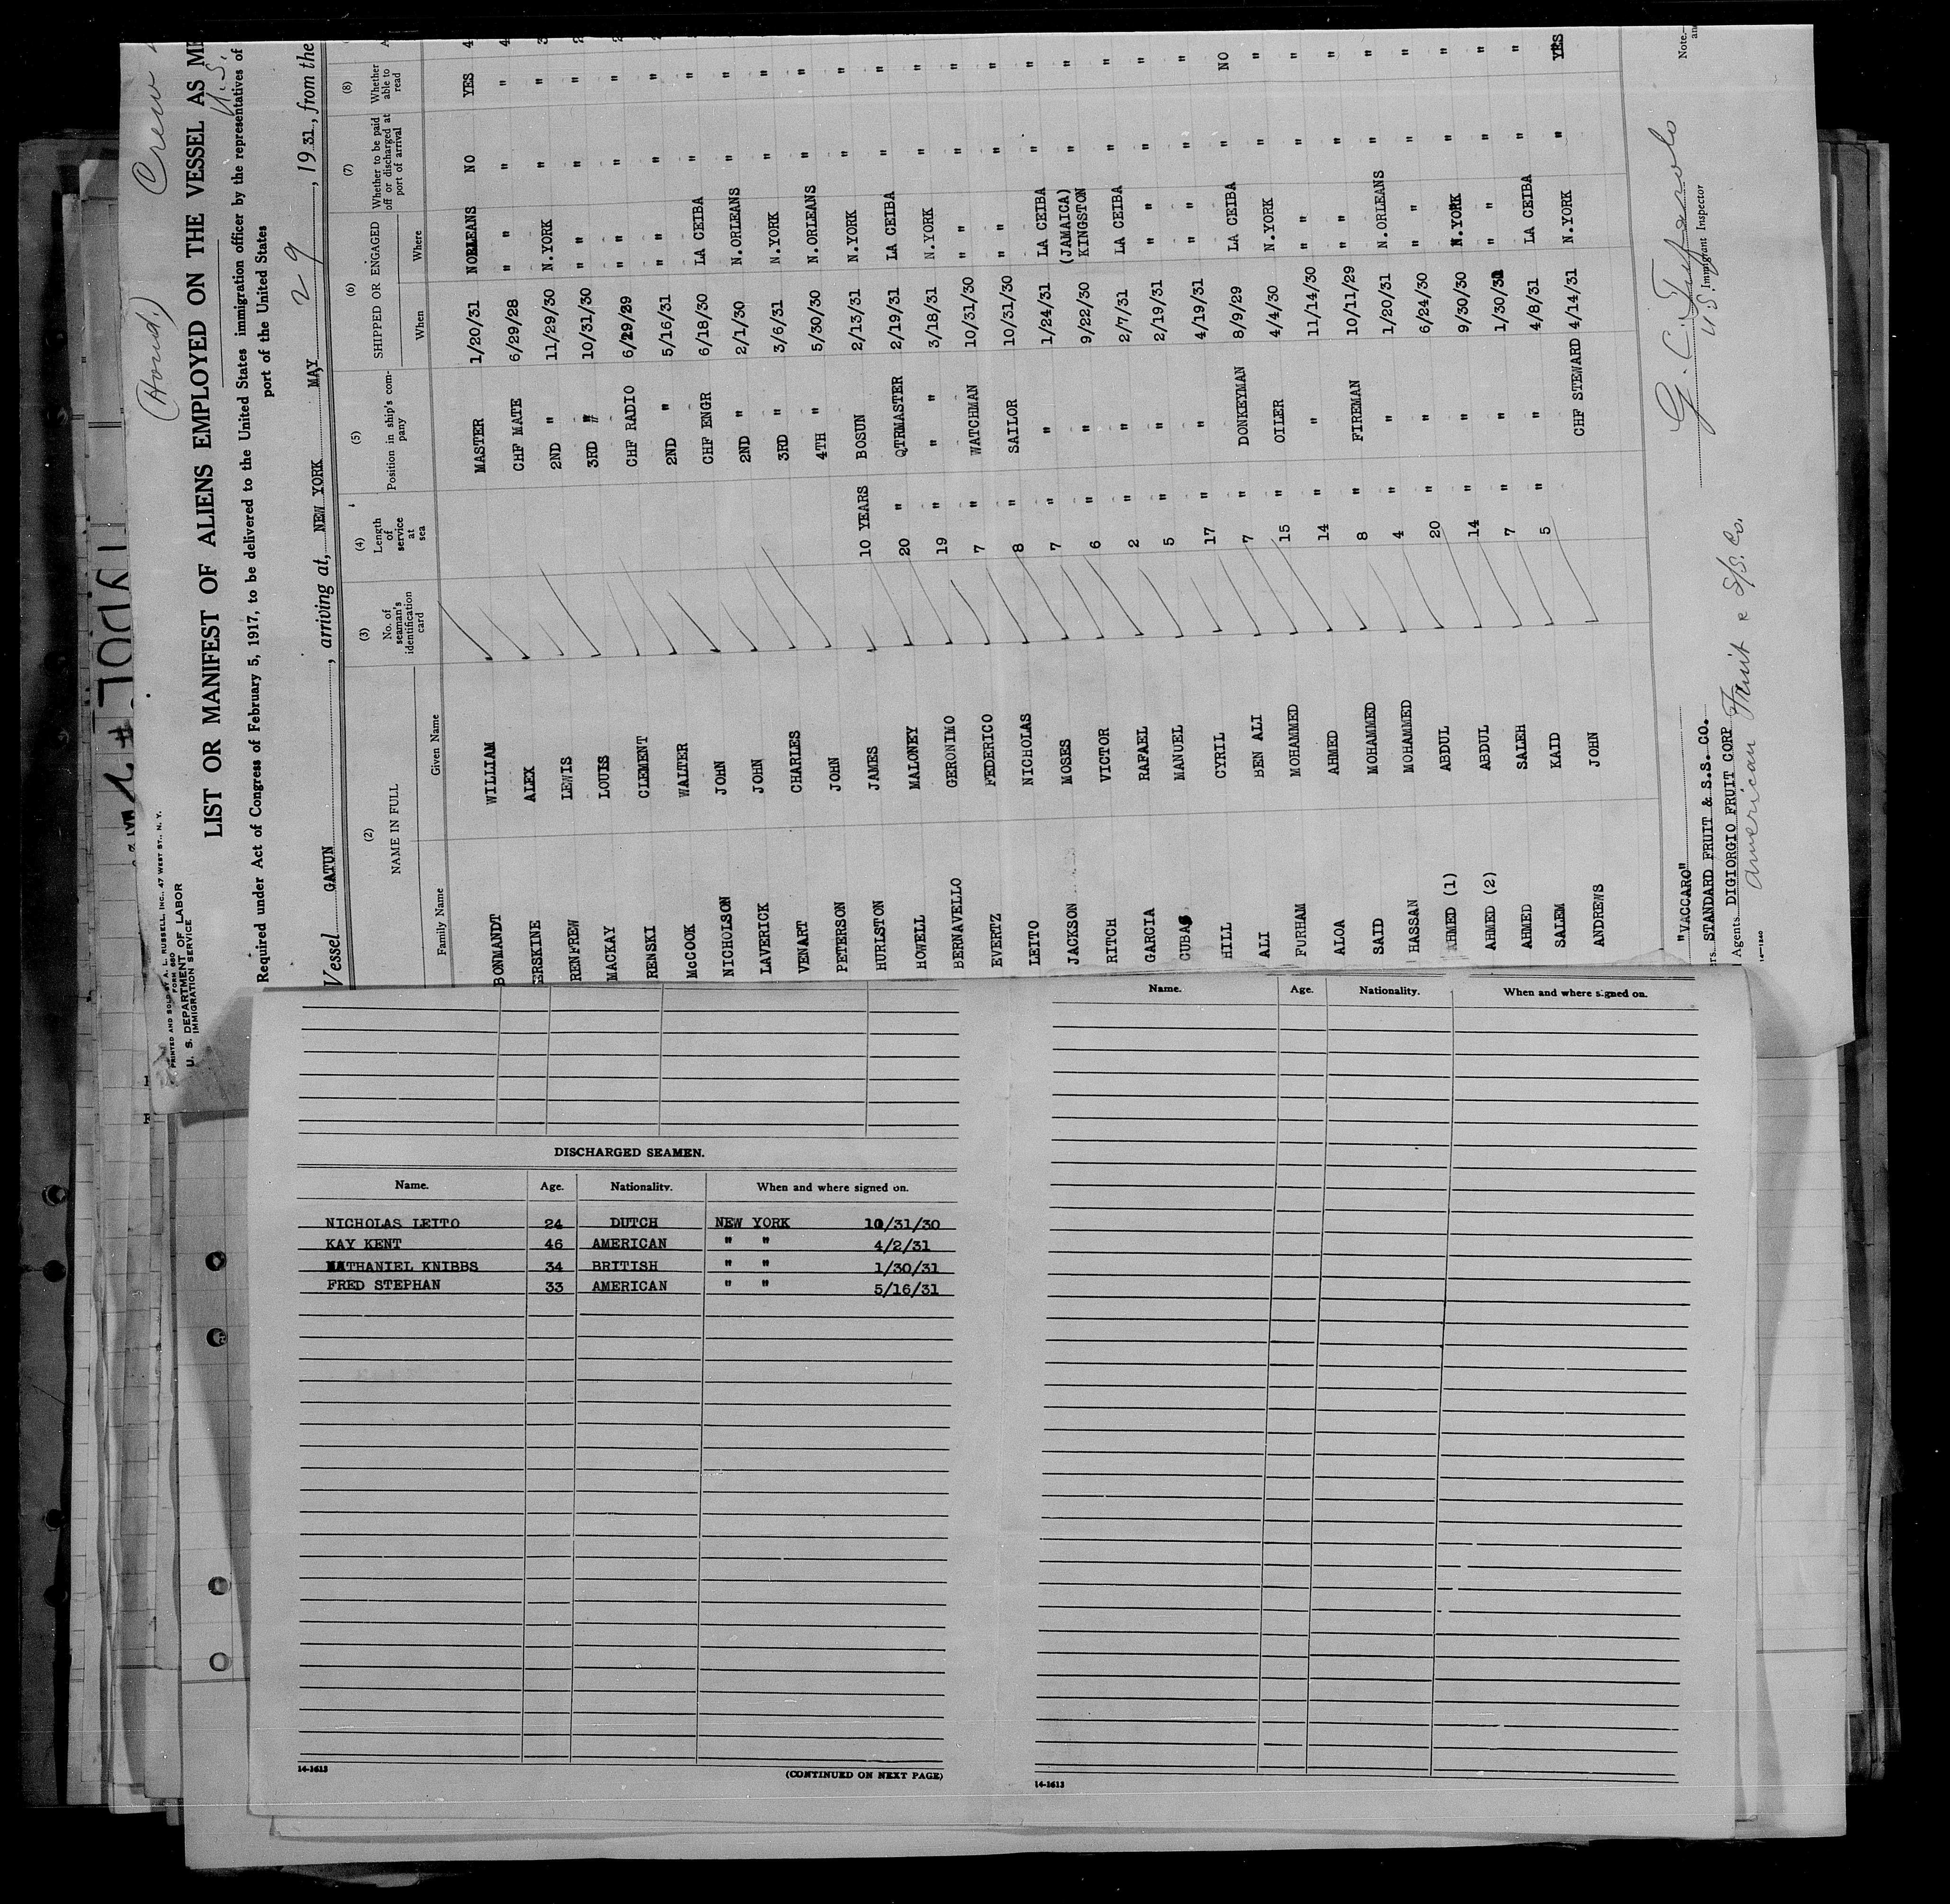 (Hond.) Crew
PRINTED AND SOLD BY A. L. RUSSELL, INC., 47 WEST ST., N. Y.
FORM 680
U. S. DEPARTMENT OF LABOR
IMMIGRATION SERVICE
LIST OR MANIFEST OF ALIENS EMPLOYED ON THE VESSEL AS ME
U.S.
Required under Act of Congress of February 5, 1917, to be delivered to the United States immigration officer by the representatives of
port of the United States
Vessel GATUN, arriving at, NEW YORK MAY 29, 1931, from the
(2) (3) (4) (5) (6) (7) (8)
NAME IN FULL No. of seaman's identification card Length of service at sea Position in ship's company SHIPPED OR ENGAGED Whether to be paid off or discharged at port of arrival Whether able to read
Family Name Given Name When Where
BONMANDT WILLIAM MASTER 1/20/31 NORLEANS NO YES 4
ERSKINE ALEX CHF MATE 6/29/28 " " " " 4
RENFREW LEWIS 2ND " 11/29/30 N.YORK " " 3
MACKAY LOUIS 3RD " 10/31/30 " " " " 2
RENSKI CLEMENT CHF RADIO 6/29/29 " " " " 2
McCOOK WALTER 2ND " 5/16/31 " " " "
NICHOLSON JOHN CHF ENGR 6/18/30 LA CEIBA " "
LAVERICK JOHN 2ND " 2/1/30 N.ORLEANS " "
VENART CHARLES 3RD " 3/6/31 N.YORK " "
PETERSON JOHN 4TH " 5/30/30 N.ORLEANS " "
HURLSTON JAMES 10 YEARS BOSUN 2/13/31 N.YORK " "
HOWELL MALONEY 20 " QTRMASTER 2/19/31 LA CEIBA " "
BERNAVELLO GERONIMO 19 " " " 3/18/31 N.YORK " "
EVERTZ FEDERICO 7 " WATCHMAN 10/31/30 " " " "
LEITO NICHOLAS 8 " SAILOR 10/31/30 " " " "
JACKSON MOSES 7 " " 1/24/31 LA CEIBA " "
RITCH VICTOR 6 " " 9/22/30 (JAMAICA) KINGSTON " "
GARCIA RAFAEL 2 " " 2/7/31 LA CEIBA " "
CUBAS MANUEL 5 " " 2/19/31 " " " "
HILL CYRIL 17 " " 4/19/31 " " " "
ALI BEN ALI 7 " DONKEYMAN 8/9/29 LA CEIBA " NO
FURHAM MOHAMMED 15 " OILER 4/4/30 N.YORK " "
ALOA AHMED 14 " " 11/14/30 " " " "
SAID MOHAMMED 8 " FIREMAN 10/11/29 " " " "
HASSAN MOHAMMED 4 " " 1/20/31 N.ORLEANS " "
AHMED (1) ABDUL 20 " " 6/24/30 " " " "
AHMED (2) ABDUL 14 " " 9/30/30 N.YORK " "
AHMED SALEH 7 " " 1/30/31 " " " "
SALEM KAID 5 " " 4/8/31 LA CEIBA " "
ANDREWS JOHN CHF STEWARD 4/14/31 N.YORK " YES
"VACCARO"
STANDARD FRUIT & S.S. CO.
Agents. DIGIORGIO FRUIT CORP
American Fruit & S/S. Co.
U.S. Immigrant Inspector
Note.—
14—1240
Name. Age. Nationality. When and where signed on.
DISCHARGED SEAMEN.
Name. Age. Nationality. When and where signed on.
NICHOLAS LEITO 24 DUTCH NEW YORK 10/31/30
KAY KENT 46 AMERICAN " " 4/2/31
NATHANIEL KNIBBS 34 BRITISH " " 1/30/31
FRED STEPHAN 33 AMERICAN " " 5/16/31
14-1613
(CONTINUED ON NEXT PAGE)
14-1613